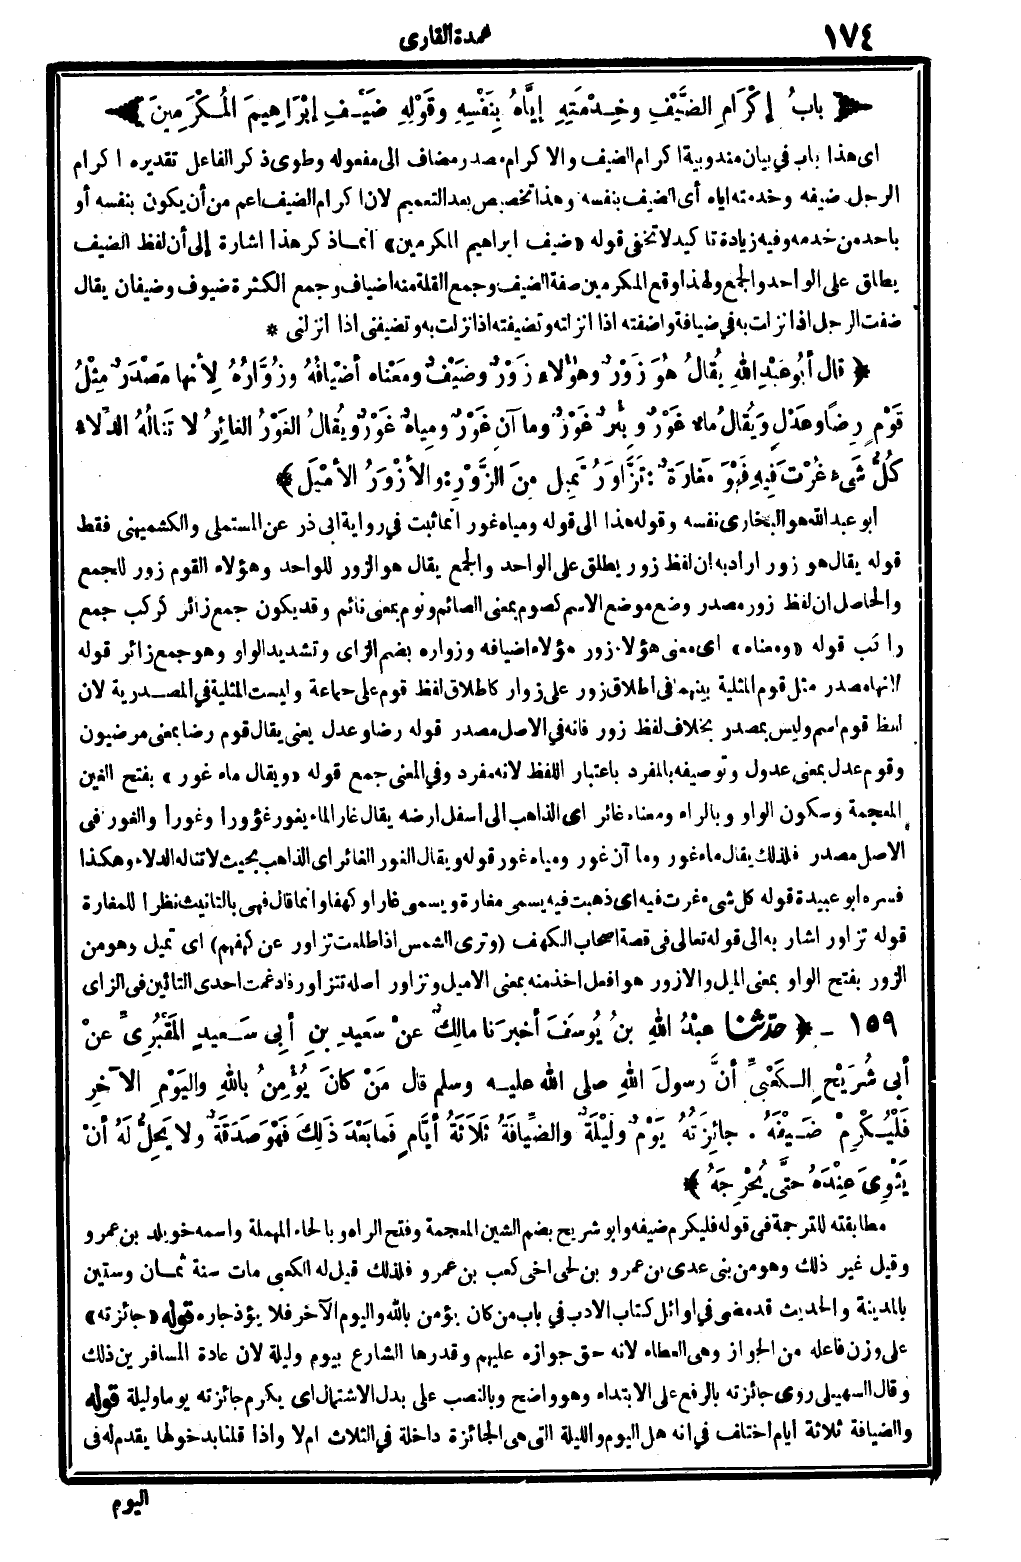 ١٧٤
عمدة القارى
﴿ بابُ إِكْرَامِ الضَّيْفِ وخِدْمَتِهِ إيَّاهُ بِنَفْسِهِ وقَوْلِهِ ضَيْفِ إبْرَاهِيمَ المُكْرَمِينَ ﴾
اى هذا باب فى بيان مندوبية اكرام الضيف والاكرام مصدر مضاف الى مفعوله وطوى ذكر الفاعل تقديره اكرام
الرجل ضيفه وخدمته اياه أى الضيف بنفسه وهذا تخصيص بعد التعميم لان اكرام الضيف اعم من أن يكون بنفسه أو
باحد من خدمه وفيه زيادة تاكيد لا تخفى قوله «ضيف ابراهيم المكرمين» انما ذكر هذا اشارة إلى أن لفظ الضيف
يطلق على الواحد والجمع ولهذا وقع المكرمين صفة الضيف وجمع القلة منه اضياف وجمع الكثرة ضيوف وضيفان يقال
ضفت الرجل اذا نزلت به فى ضيافة واضفته اذا انزلته وتضيفته اذا نزلت به وتضيفنى اذا انزلنى *
﴿ قال أبُو عَبْدِ اللهِ يُقالُ هُوَ زَوْرٌ وهٰؤُلاءِ زَوْرٌ وضَيْفٌ ومَعْناه أضْيافُهُ وزُوَّارُهُ لِأنها مَصْدَرٌ مِثْلُ
قَوْمٍ رِضًا وعَدْلٍ ويُقالُ ماء غَوْرٌ وبِئْرٌ غَوْرٌ وما آنِ غَوْرٌ ومِياهٌ غَوْرٌ ويُقالُ الغَوْرُ الغائِرُ لا تَنالُهُ الدِّلاء
كُلُّ شَىءٍ غُرْتَ فِيهِ فَهْوَ مَغارَةٌ: تَزَّاوَرُ تَمِيل مِنَ الزَّوْرِ: والأزْوَرُ الأمْيَل ﴾
أبو عبد الله هو البخارى نفسه وقوله هذا الى قوله ومياه غور انما ثبت فى رواية ابى ذر عن المستملى والكشميهنى فقط
قوله يقال هو زور اراد به ان لفظ زور يطلق على الواحد والجمع يقال هو الزور للواحد وهؤلاء القوم زور للجمع
والحاصل ان لفظ زور مصدر وضع موضع الاسم كصوم بمعنى الصائم ونوم بمعنى نائم وقد يكون جمع زائر كركب جمع
راكب قوله «ومعناه» اى معنى هؤلاء زور هؤلاء اضيافه وزواره بضم الزاى وتشديد الواو وهو جمع زائر قوله
لانها مصدر مثل قوم المثلية بينهما فى اطلاق زور على زوار كاطلاق لفظ قوم على جماعة وليست المثلية فى المصدرية لان
لفظ قوم اسم وليس بمصدر بخلاف لفظ زور فانه فى الاصل مصدر قوله رضا وعدل يعنى يقال قوم رضا بمعنى مرضيون
وقوم عدل بمعنى عدول وتوصيفه بالمفرد باعتبار اللفظ لانه مفرد وفى المعنى جمع قوله «ويقال ماء غور» بفتح الغين
المعجمة وسكون الواو وبالراء ومعناه غائر اى الذاهب الى اسفل ارضه يقال غار الماء يغور غؤورا وغورا والغور فى
الاصل مصدر فلذلك يقال ماء غور وما آن غور ومياه غور قوله ويقال الغور الغائر اى الذاهب بحيث لا تناله الدلاء وهكذا
فسره ابو عبيدة قوله كل شىء غرت فيه اى ذهبت فيه يسمى مغارة ويسمى غارا وكهفا وانما قال فهى بالتانيث نظرا للمغارة
قوله تزاور اشار به الى قوله تعالى فى قصة اصحاب الكهف (وترى الشمس اذا طلعت تزاور عن كهفهم) اى تميل وهو من
الزور بفتح الواو بمعنى الميل والازور هو افعل اخذ منه بمعنى الاميل وتزاور اصله تتزاور فادغمت احدى التائين فى الزاى
١٥٩ - ﴿ حدَّثنا عبْدُ اللهِ بنُ يُوسُفَ أخبرَنا مالِكٌ عنْ سَعيدِ بنِ أبِى سَعيدٍ المَقْبُرِىِّ عنْ
أبِى شُرَيْحٍ الكَعْبِىِّ أنَّ رسولَ اللهِ صلى الله عليه وسلم قال مَنْ كانَ يُؤْمِنُ باللهِ واليَوْمِ الآخِرِ
فَلْيُكْرِمْ ضَيْفَهُ . جائِزَتُهُ يَوْمٌ ولَيْلَةٌ والضِّيافَةُ ثَلاَثَةُ أيَّامٍ فَما بَعْدَ ذَلِكَ فَهْوَ صَدَقَةٌ ولا يَحِلُّ لَهُ أنْ
يَثْوِىَ عِنْدَهُ حتَّى يُحْرِجَهُ ﴾
مطابقته للترجمة فى قوله فليكرم ضيفه وابو شريح بضم الشين المعجمة وفتح الراء وبالحاء المهملة واسمه خويلد بن عمرو
وقيل غير ذلك وهو من بنى عدى بن عمرو بن لحى اخى كعب بن عمرو فلذلك قيل له الكعبى مات سنة ثمان وستين
بالمدينة والحديث قد مضى فى اوائل كتاب الادب فى باب من كان يؤمن بالله واليوم الآخر فلا يؤذ جاره قوله «جائزته»
على وزن فاعله من الجواز وهى العطاء لانه حق جوازه عليهم وقدرها الشارع بيوم وليلة لان عادة المسافرين ذلك
وقال السهيلى روى جائزته بالرفع على الابتداء وهو واضح وبالنصب على بدل الاشتمال اى يكرم جائزته يوما وليلة قوله
والضيافة ثلاثة ايام اختلف فى انه هل اليوم والليلة التى هى الجائزة داخلة فى الثلاث ام لا واذا قلنا بدخولها يقدم له فى
اليوم